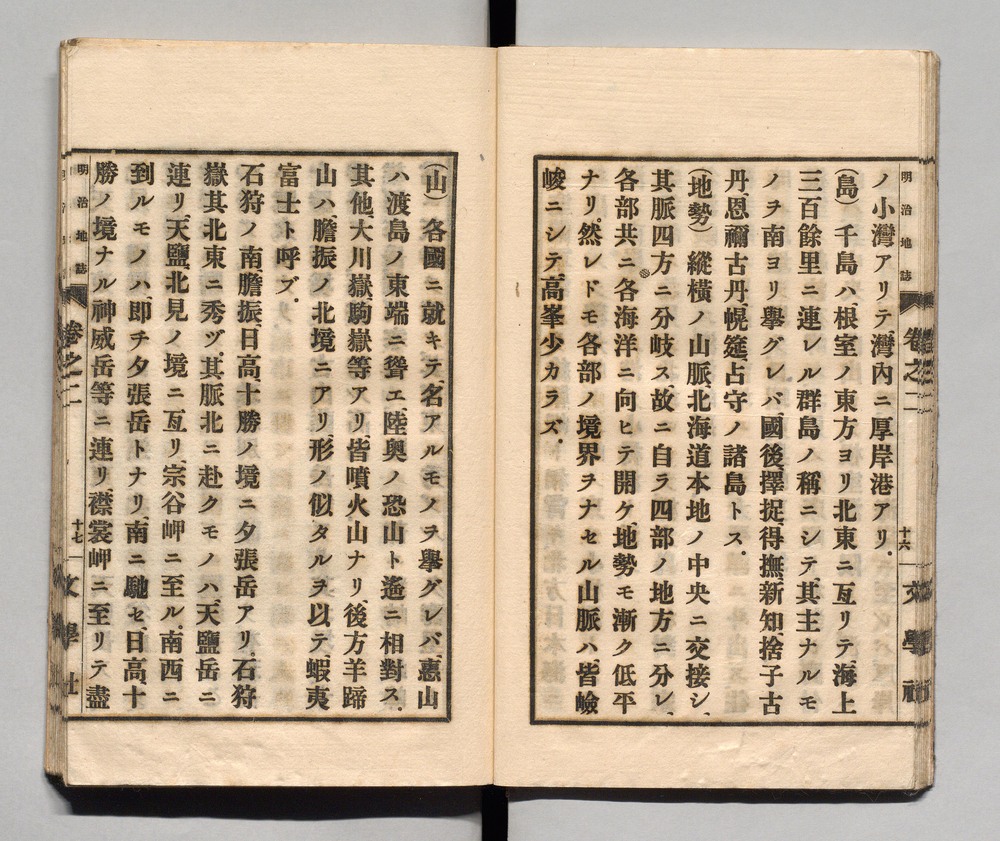 明治地誌 卷之二 十六 文學社
ノ小灣アリテ、灣內ニ厚岸港アリ。
(島) 千島ハ、根室ノ東方ヨリ北東ニ亙リテ、海上
三百餘里ニ連レル群島ノ稱ニシテ、其主ナルモ
ノヲ南ヨリ擧グレバ、國後、擇捉、得撫、新知、捨子古
丹、恩禰古丹、幌筵、占守ノ諸島トス。
(地勢) 縱橫ノ山脈、北海道本地ノ中央ニ交接シ、
其脈四方ニ分岐ス、故ニ自ラ四部ノ地方ニ分レ、
各部共ニ各海洋ニ向ヒテ開ケ、地勢モ漸ク低平
ナリ、然レドモ各部ノ境界ヲナセル山脈ハ皆嶮
峻ニシテ、高峯少カラズ。
(山) 各國ニ就キテ、名アルモノヲ擧グレバ、惠山
ハ渡島ノ東端ニ聳エ、陸奧ノ恐山ト遙ニ相對ス。
其他、大川嶽、駒嶽等アリ、皆噴火山ナリ、後方羊蹄
山ハ、膽振ノ北境ニアリ、形ノ似タルヲ以テ蝦夷
富士ト呼ブ。
石狩ノ南、膽振、日高、十勝ノ境ニ夕張岳アリ。石狩
嶽其北東ニ秀ヅ、其脈北ニ赴クモノハ、天鹽岳ニ
連リ、天鹽、北見ノ境ニ亙リ、宗谷岬ニ至ル、南西ニ
到ルモノハ、卽チ夕張岳トナリ、南ニ馳セ、日高、十
勝ノ境ナル神威岳等ニ連リ、襟裳岬ニ至リテ盡
明治地誌 卷之二 十七 文學社